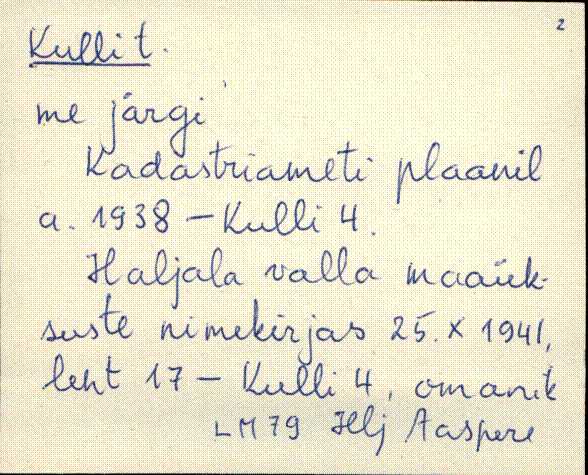 2
Kulli t.
me järgi
Kadastriameti plaanil
a. 1938 – Kulli 4.
Haljala valla maaük-
suste nimekirjas 25. X 1941,
leht 17 – Kulli 4, omanik
LM 79 Hlj Aaspere